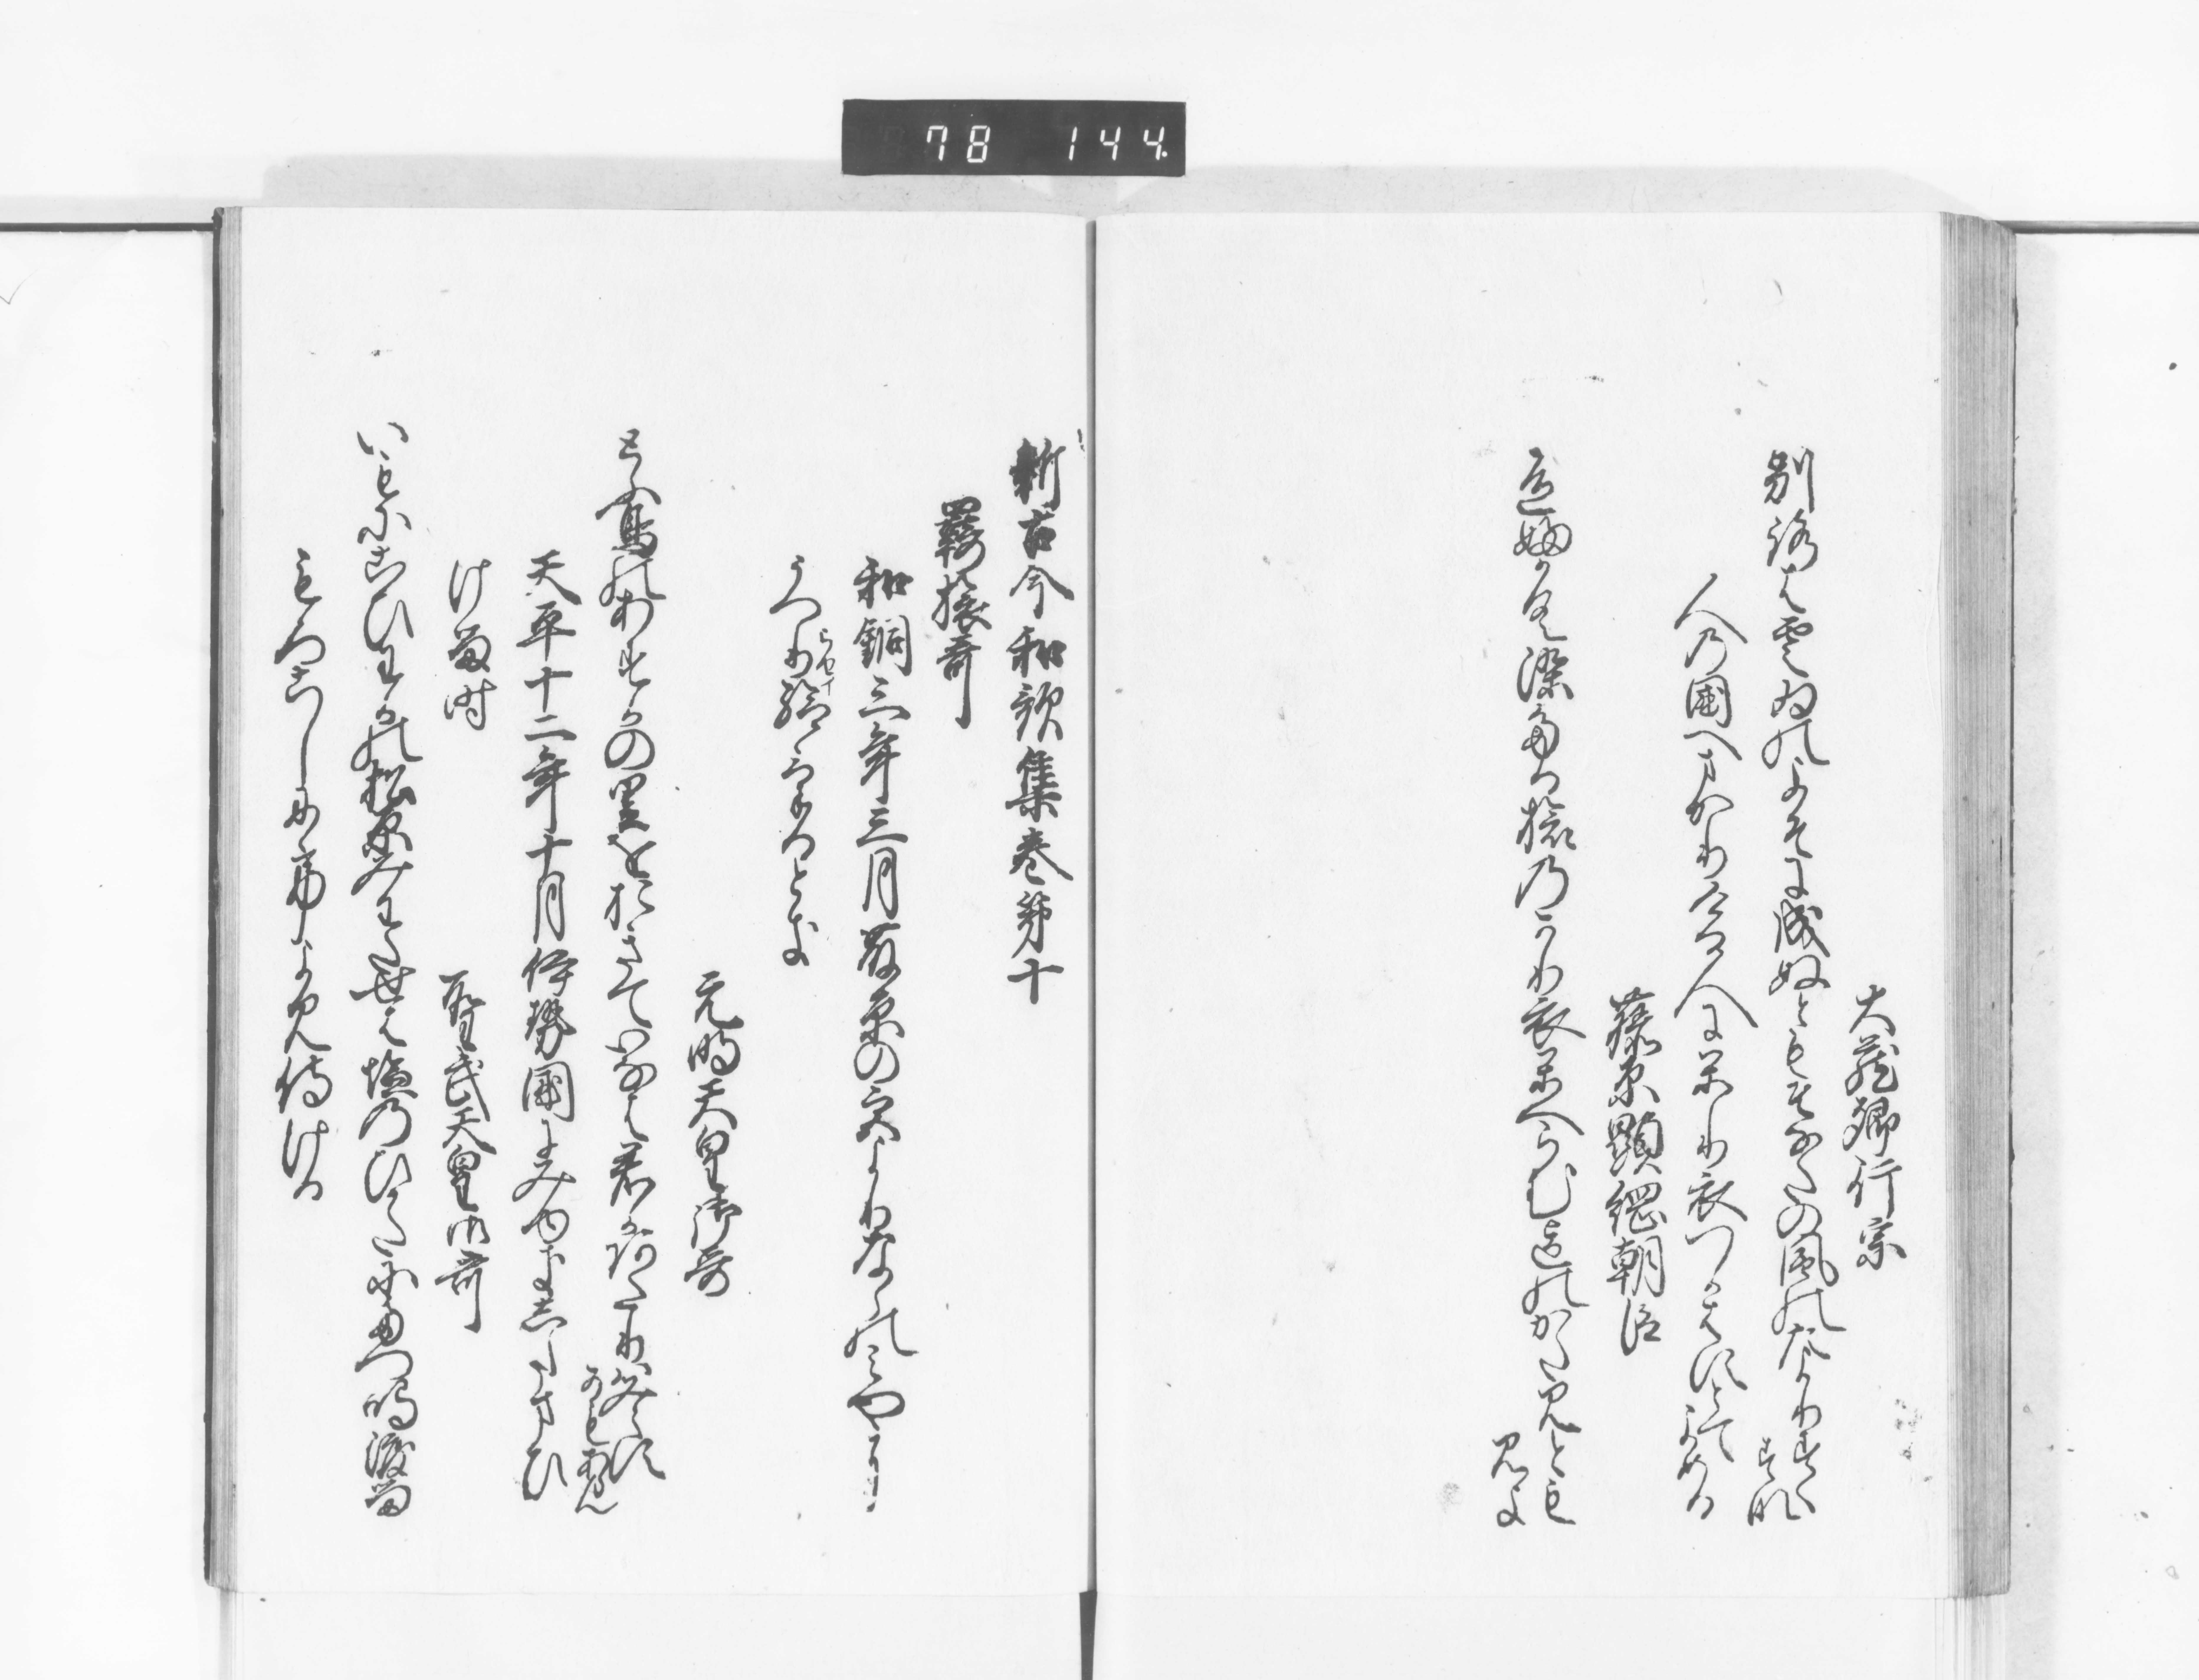 78 144
大蔵卿行宗
別路は雲ゐのよそに成ぬともそなたの風のたよりすくすな
人の国へまかりける人にかり衣つかはすとてよめる
藤原顕綱朝臣
色ふかく染たる旅のかり衣かへらむまてのかたみとも見よ
新古今和歌集巻第十
羇旅哥
和銅三年三月藤原の宮よりならのみやに
うつり給うけるとき
らせ
元明天皇御哥
とふ鳥のあすかの里をおきていなは君かあたりはみえすかもあらん
天平十二年十月伊勢国にみゆきしたまひ
ける時
聖武天皇御哥
いもにこひわかの松原みわたせは塩のひかたにたつ鳴渡る
もろこしにてよみ侍ける